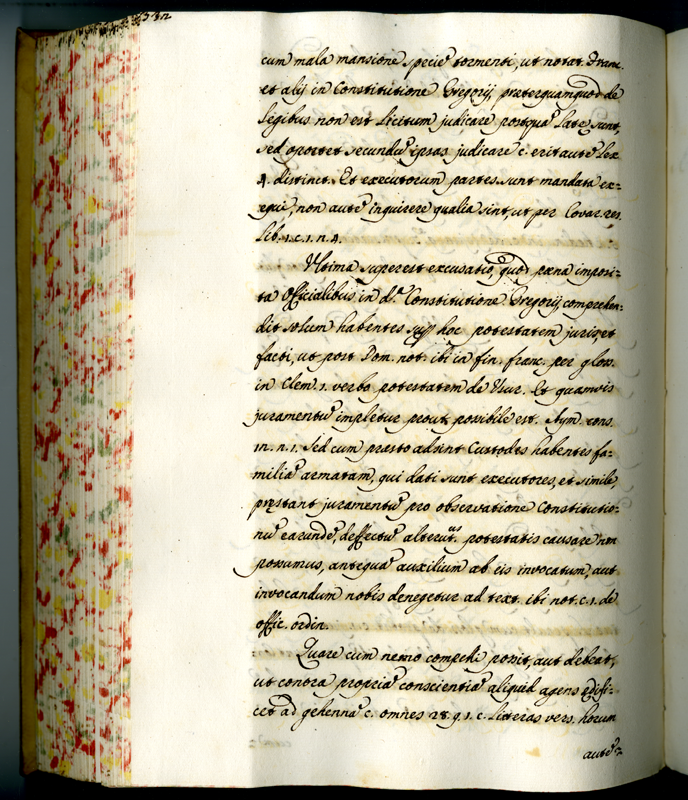 cum mala mansione specie tormenti, ut notat Franc.
et alij in Constitutione Gregorij, præterquamquod de
legibus non est licitum judicare postqua' latæ sunt,
sed oportet secundu' ipsas judicare c. erit aute' lex
4. distinct. Et executorum partes sunt mandata ex=
equi, non aute' inquirere qualia sint, ut per Covar. res.
lib. 1. c. 1. n. 4.
Ultima superest excusatio, quod pæna imposi=
ta Officialibus in d.ª Constitutione Gregorij, comprehen=
dit solum habentes sup. hoc potestatem juris, et
facti, ut post Dom. not. ibi in fin. franc. per glos.
in Clem. 1. verbo potestatem de Usur. Et quamvis
juramentu' impletur prout possibile est. Aym. cons.
in. n. 1. Sed cum præsto adsint Custodes habentes fa=
milia' armatam, qui dati sunt executores, et simile
præstant juramentu' pro observatione Constitutio=
nu' earunde', deffectu' alterut.us potestatis causare non
possumus, antequa' auxilium ab eis invocatum, aut
invocandum nobis denegetur ad text. ibi not. c. 1. de
offic. ordin.
Quare cum nemo compelli possit, aut debeat,
ut contra propria' conscientia' aliquid agens edifi=
cet ad gehenna' c. omnes 28. q. 1. c. literas vers. horum
aute'